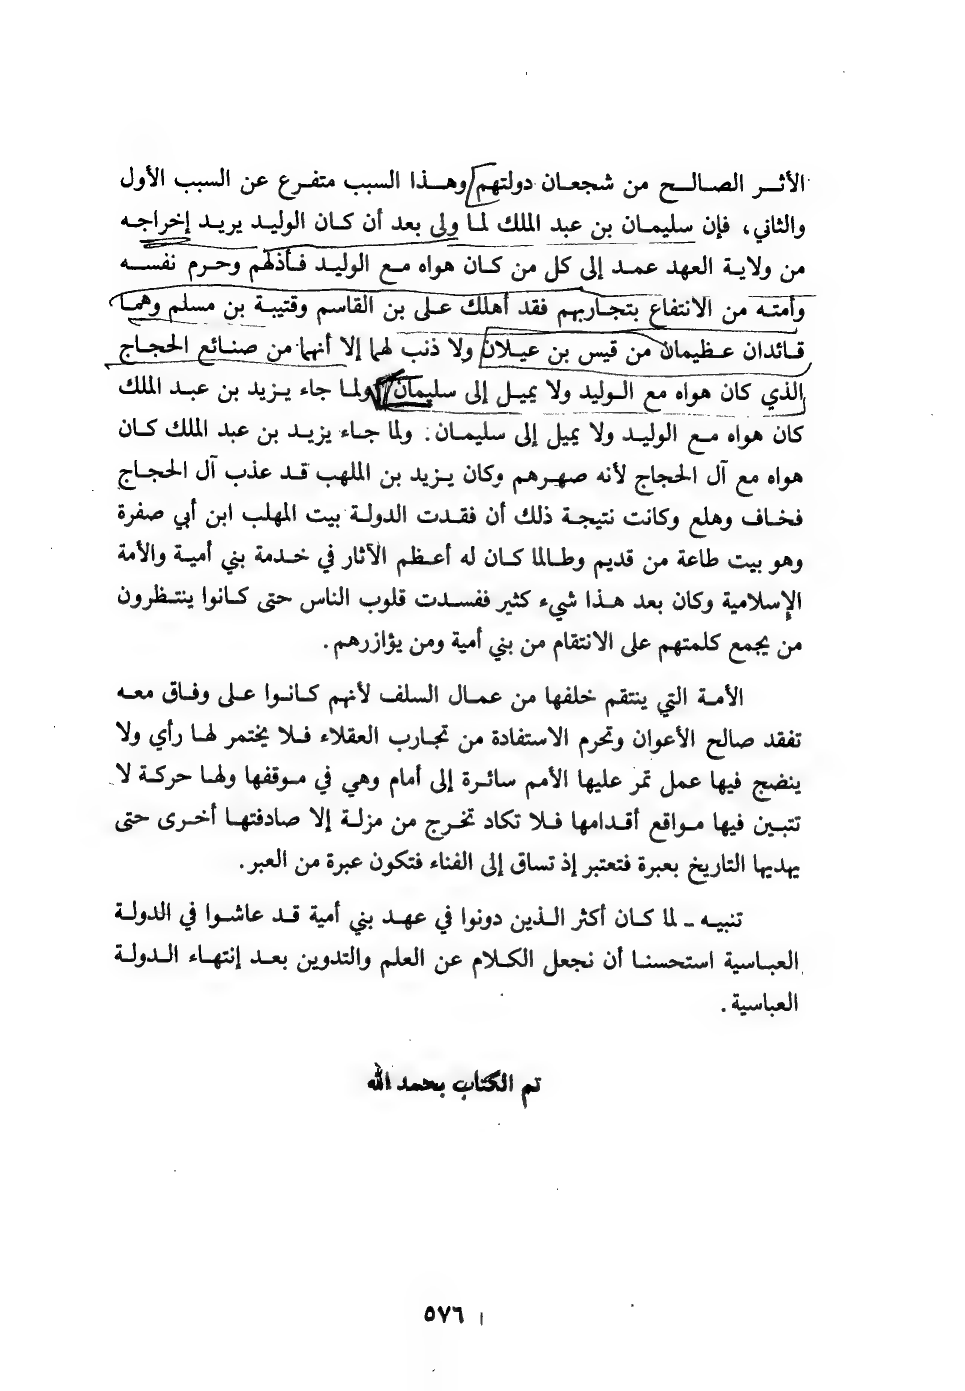 الأثر الصالح من شجعان دولتهم وهذا السبب متفرع عن السبب الأول
والثاني، فإن سليمان بن عبد الملك لما ولى بعد أن كان الوليد يريد إخراجه
من ولاية العهد عمد إلى كل من كان هواه مع الوليد فأذلهم وحرم نفسه
وأمته من الانتفاع بتجاربهم فقد أهلك على بن القاسم وقتيبة بن مسلم وهما
قائدان عظيمان من قيس بن عيلان ولا ذنب لهما إلا أنهما من صنائع الحجاج
الذي كان هواه مع الوليد ولا يميل إلى سليمان ولما جاء يزيد بن عبد الملك
كان هواه مع الوليد ولا يميل إلى سليمان. ولما جاء يزيد بن عبد الملك كان
هواه مع آل الحجاج لأنه صهرهم وكان يزيد بن الملهب قد عذب آل الحجاج
فخاف وهلع وكانت نتيجة ذلك أن فقدت الدولة بيت المهلب ابن أبي صفرة
وهو بيت طاعة من قديم وطالما كان له أعظم الآثار في خدمة بني أمية والأمة
الإسلامية وكان بعد هذا شيء كثير ففسدت قلوب الناس حتى كانوا ينتظرون
من يجمع كلمتهم على الانتقام من بني أمية ومن يؤازرهم.
الأمة التي ينتقم خلفها من عمال السلف لأنهم كانوا على وفاق معه
تفقد صالح الأعوان وتحرم الاستفادة من تجارب العقلاء فلا يختمر لها رأي ولا
ينضج فيها عمل تمر عليها الأمم سائرة إلى أمام وهي في موقفها ولها حركة لا
تتبين فيها مواقع أقدامها فلا تكاد تخرج من مزلة إلا صادفتها أخرى حتى
يهديها التاريخ بعبرة فتعتبر إذ تساق إلى الفناء فتكون عبرة من العبر.
تنبيه ـ لما كان أكثر الذين دونوا في عهد بني أمية قد عاشوا في الدولة
العباسية استحسنا أن نجعل الكلام عن العلم والتدوين بعد إنتهاء الدولة
العباسية.
تم الكتاب بحمد الله
٥٧٦